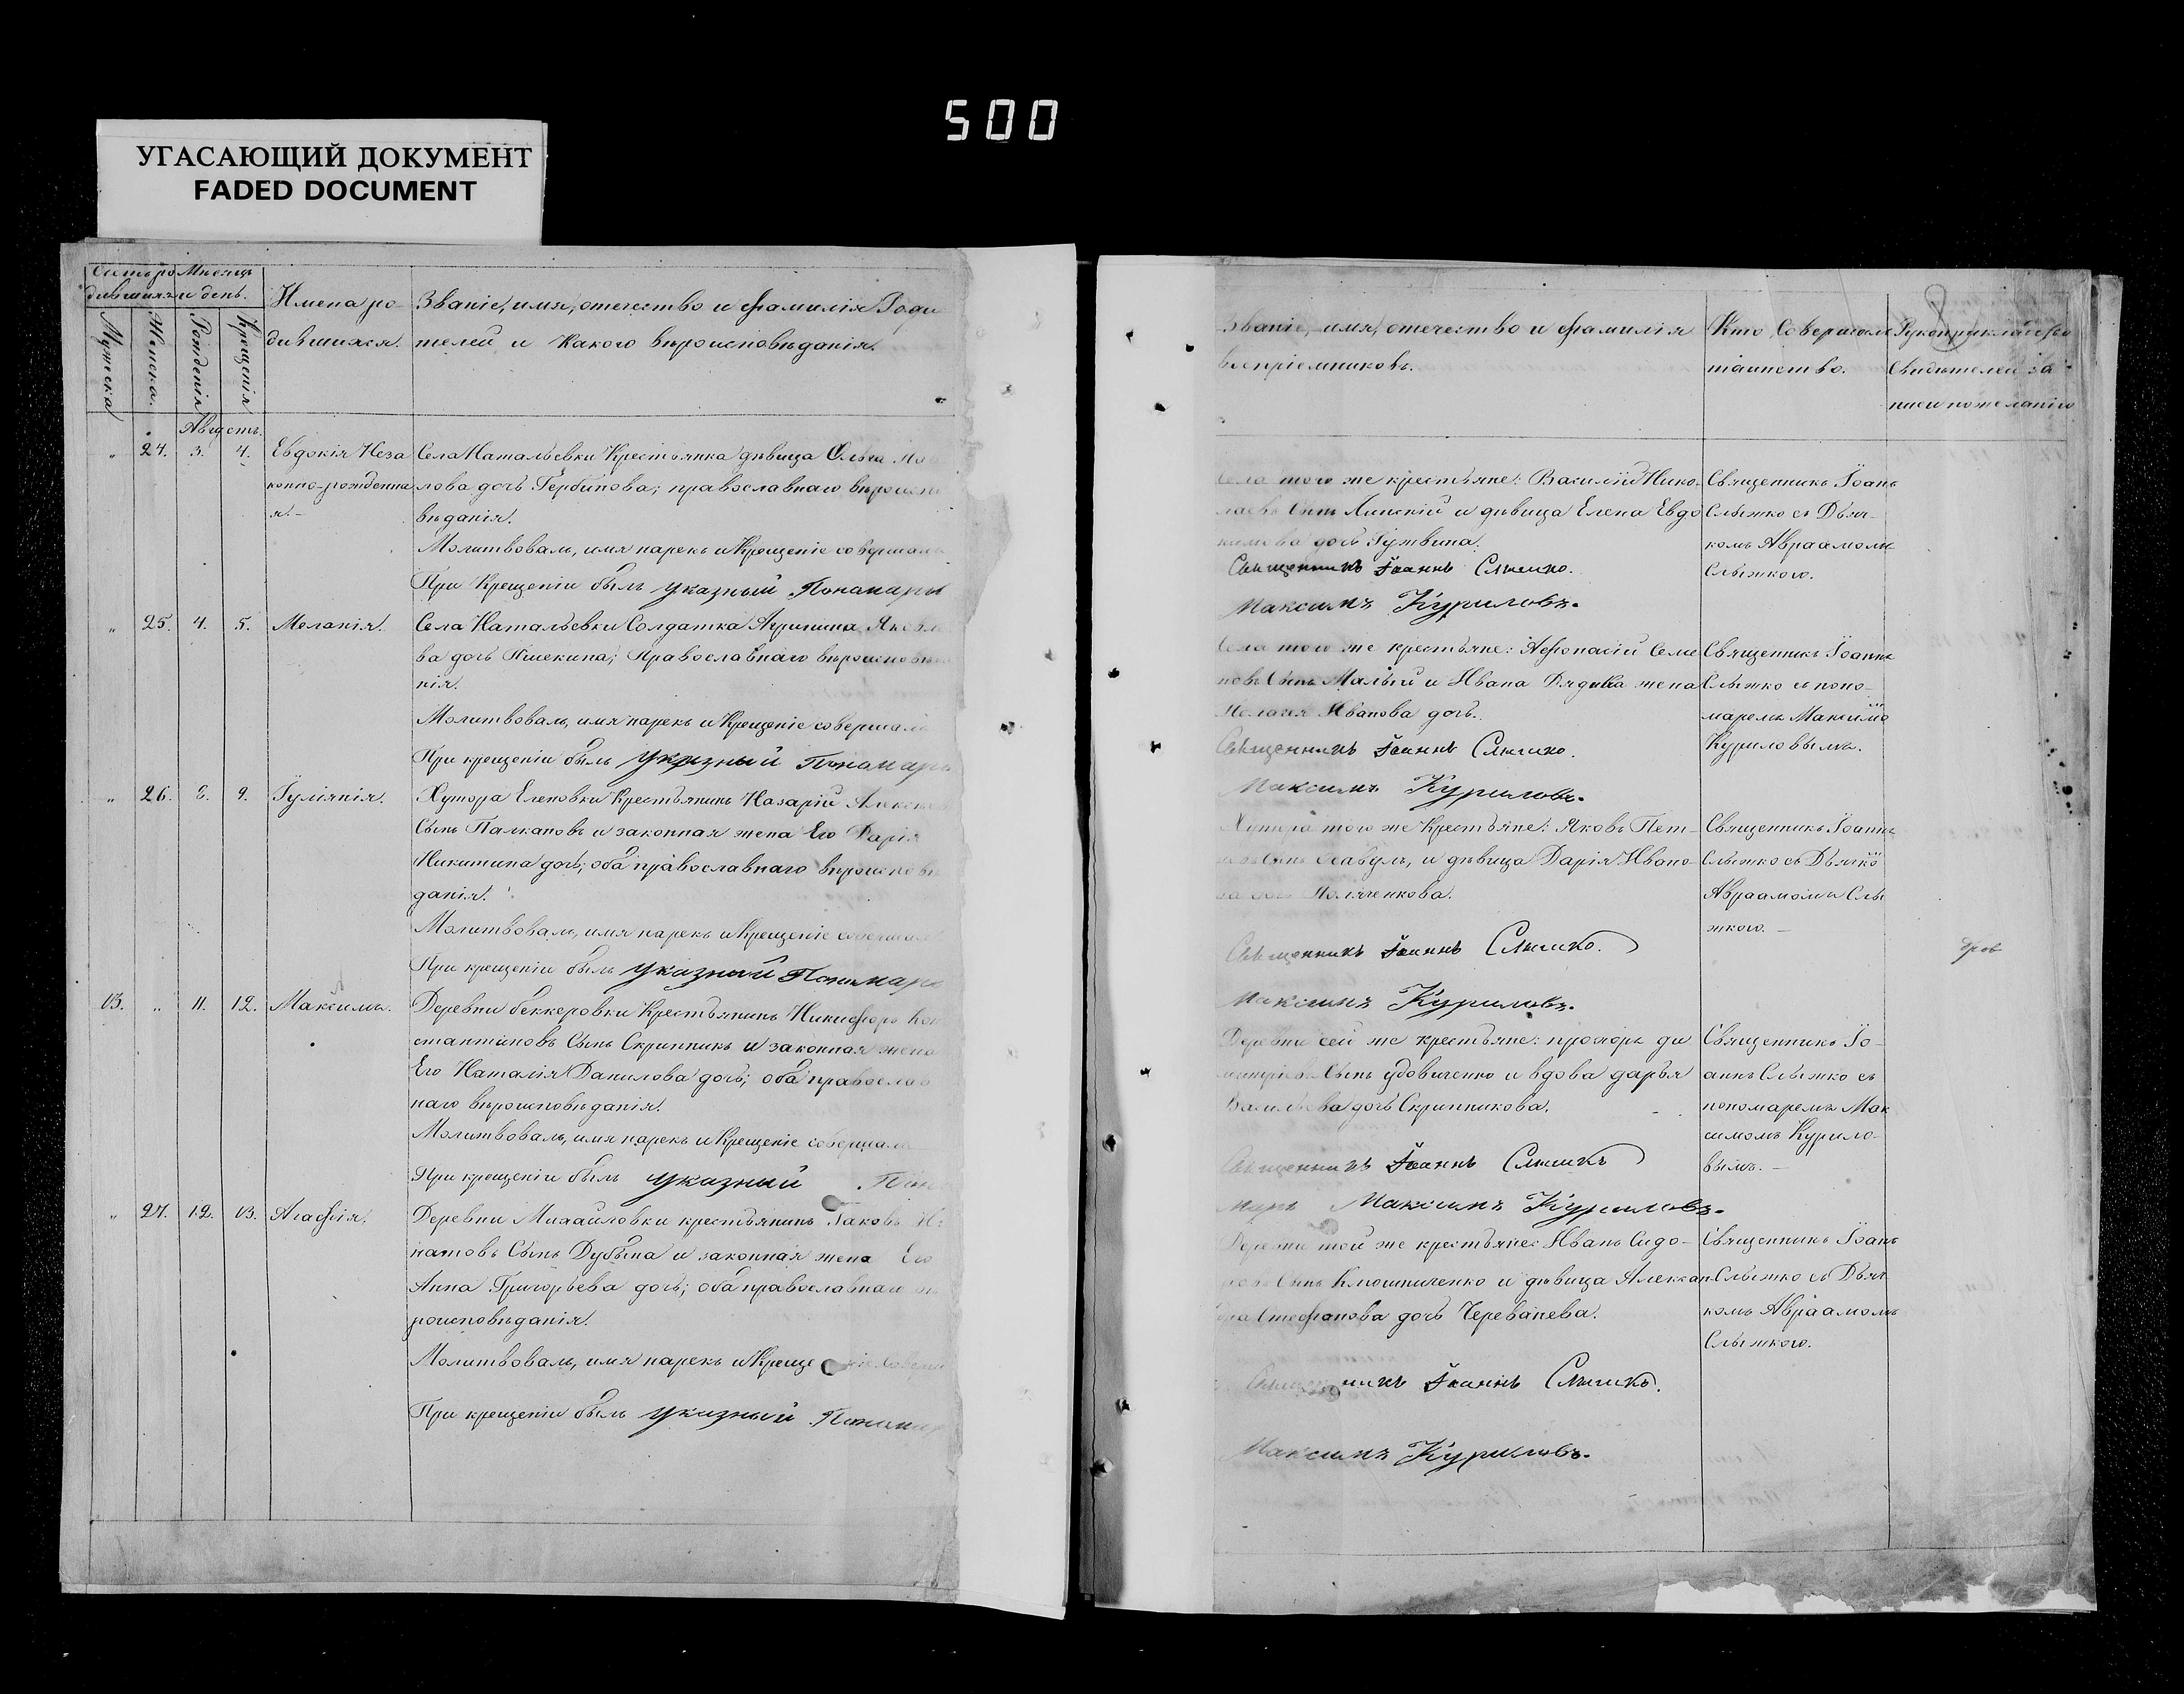 500
УГАСАЮЩИЙ ДОКУМЕНТ
FADED DOCUMENT
Счетъ ро
дившихся
Мѣсяцъ
и день.
Мужеска
Женска.
Рожденія
Крещенія
Имена ро-
дившихся.
Званіе, имя, отечество и фамилія Роди
телей и Какого вѣроисповѣданія.
Августъ.
" 24. 3. 4.
Евдокія Неза
конно-рожденна
я.-
Села Натальевки Крестьянка дѣвица Ольга
лова дочь Гербинова; православнаго вѣроиспо
вѣданія.
Молитвовалъ, имя нарекъ и Крещеніе совершалъ
При Крещеніи былъ указный Понамарь
" 25. 4. 5.
Меланія.
Села Натальевки Солдатка Агрипина Яковле
ва дочь Пшекина; Православнаго вѣроисповѣда
нія.
Молитвовалъ, имя нарекъ и Крещеніе совершалъ
При крещеніи былъ указный Понамарь
" 26. 8. 9.
Іуліянія.
Хутора Еленовки Крестьянинъ Назарій Алексѣев
Сынъ Палкановъ и законная жена Его Дарія
Никитина дочь; оба православнаго вѣроисповѣ
данія.
Молитвовалъ, имя нарекъ и Крещеніе совершалъ
При крещеніи былъ указный Понамарь
13. " 11. 12.
Максимъ.
Деревни беккеровки Крестьянинъ Никифоръ Кон
стантиновъ Сынъ Скрипникъ и законная жена
Его Наталія Данилова дочь; оба православ
наго вѣроисповѣданія.
Молитвовалъ, имя нарекъ и Крещеніе совершалъ
При крещеніи былъ указный Пона
" 27. 12. 13.
Агафія.
Деревни Михайловки крестьянинъ Іаковъ Иг
натовъ Сынъ Дубына и законная жена Его
Анна Григорьева дочь; оба православнаго вѣ
роисповѣданія.
Молитвовалъ, имя нарекъ и Крещеніе соверш
При крещеніи былъ указный Понамар
Званіе, имя, отечество и фамилія
воспріемниковъ.
Кто Совершалъ
таинство.
Рукоприкладство
Свидѣтелей за
писи по желанію
Села того же крестьяне: Василій Нико-
лаевъ Сынъ Липскій и дѣвица Елена Евдо
кимова дочь Гужвина.
Священникъ Іоаннъ Слышко.
Максимъ Куриловъ.
Священникъ Іоанъ
Слыжко съ Дьяч-
комъ Авраамомъ
Слыжкого.
Села того же крестьяне: Афонасій Семе
новъ Сынъ Малый и Ивана Дядика жена
Пелагея Иванова дочь.
Священникъ Іоаннъ Слышко.
Максимъ Куриловъ.
Священникъ Іоаннъ
Слыжко съ поно-
маремъ Максимо
Куриловымъ.
Хутора того же Крестьяне: Яковъ Пет-
ровъ Сынъ Осавулъ, и дѣвица Дарія Ивано-
ва дочь Поляченкова.
Священникъ Іоаннъ Слышко.
Максимъ Куриловъ.
Священникъ Іоаннъ
Слыжко съ Дьячко
Авраамомъ Слы
жкого. -
Деревни сей же крестьяне: прохоръ ди
митріевъ Сынъ удовиченко и вдова дарья
Васильева дочь Скрипникова.
Священникъ Іоаннъ Слышко
марь Максимъ Куриловъ.
Священникъ Іо-
аннъ Слыжко съ
пономаремъ Мак
симомъ Курило-
вымъ. -
Деревни той же крестьяне: Иванъ Сидо-
ровъ Сынъ Клюшниченко и дѣвица Алексан-
дра Стефанова дочь Череванева.
Священникъ Іоаннъ Слышко.
Максимъ Куриловъ.
Священникъ Іоанъ
Слыжко съ Дьяч-
комъ Авраамомъ
Слыжкого.